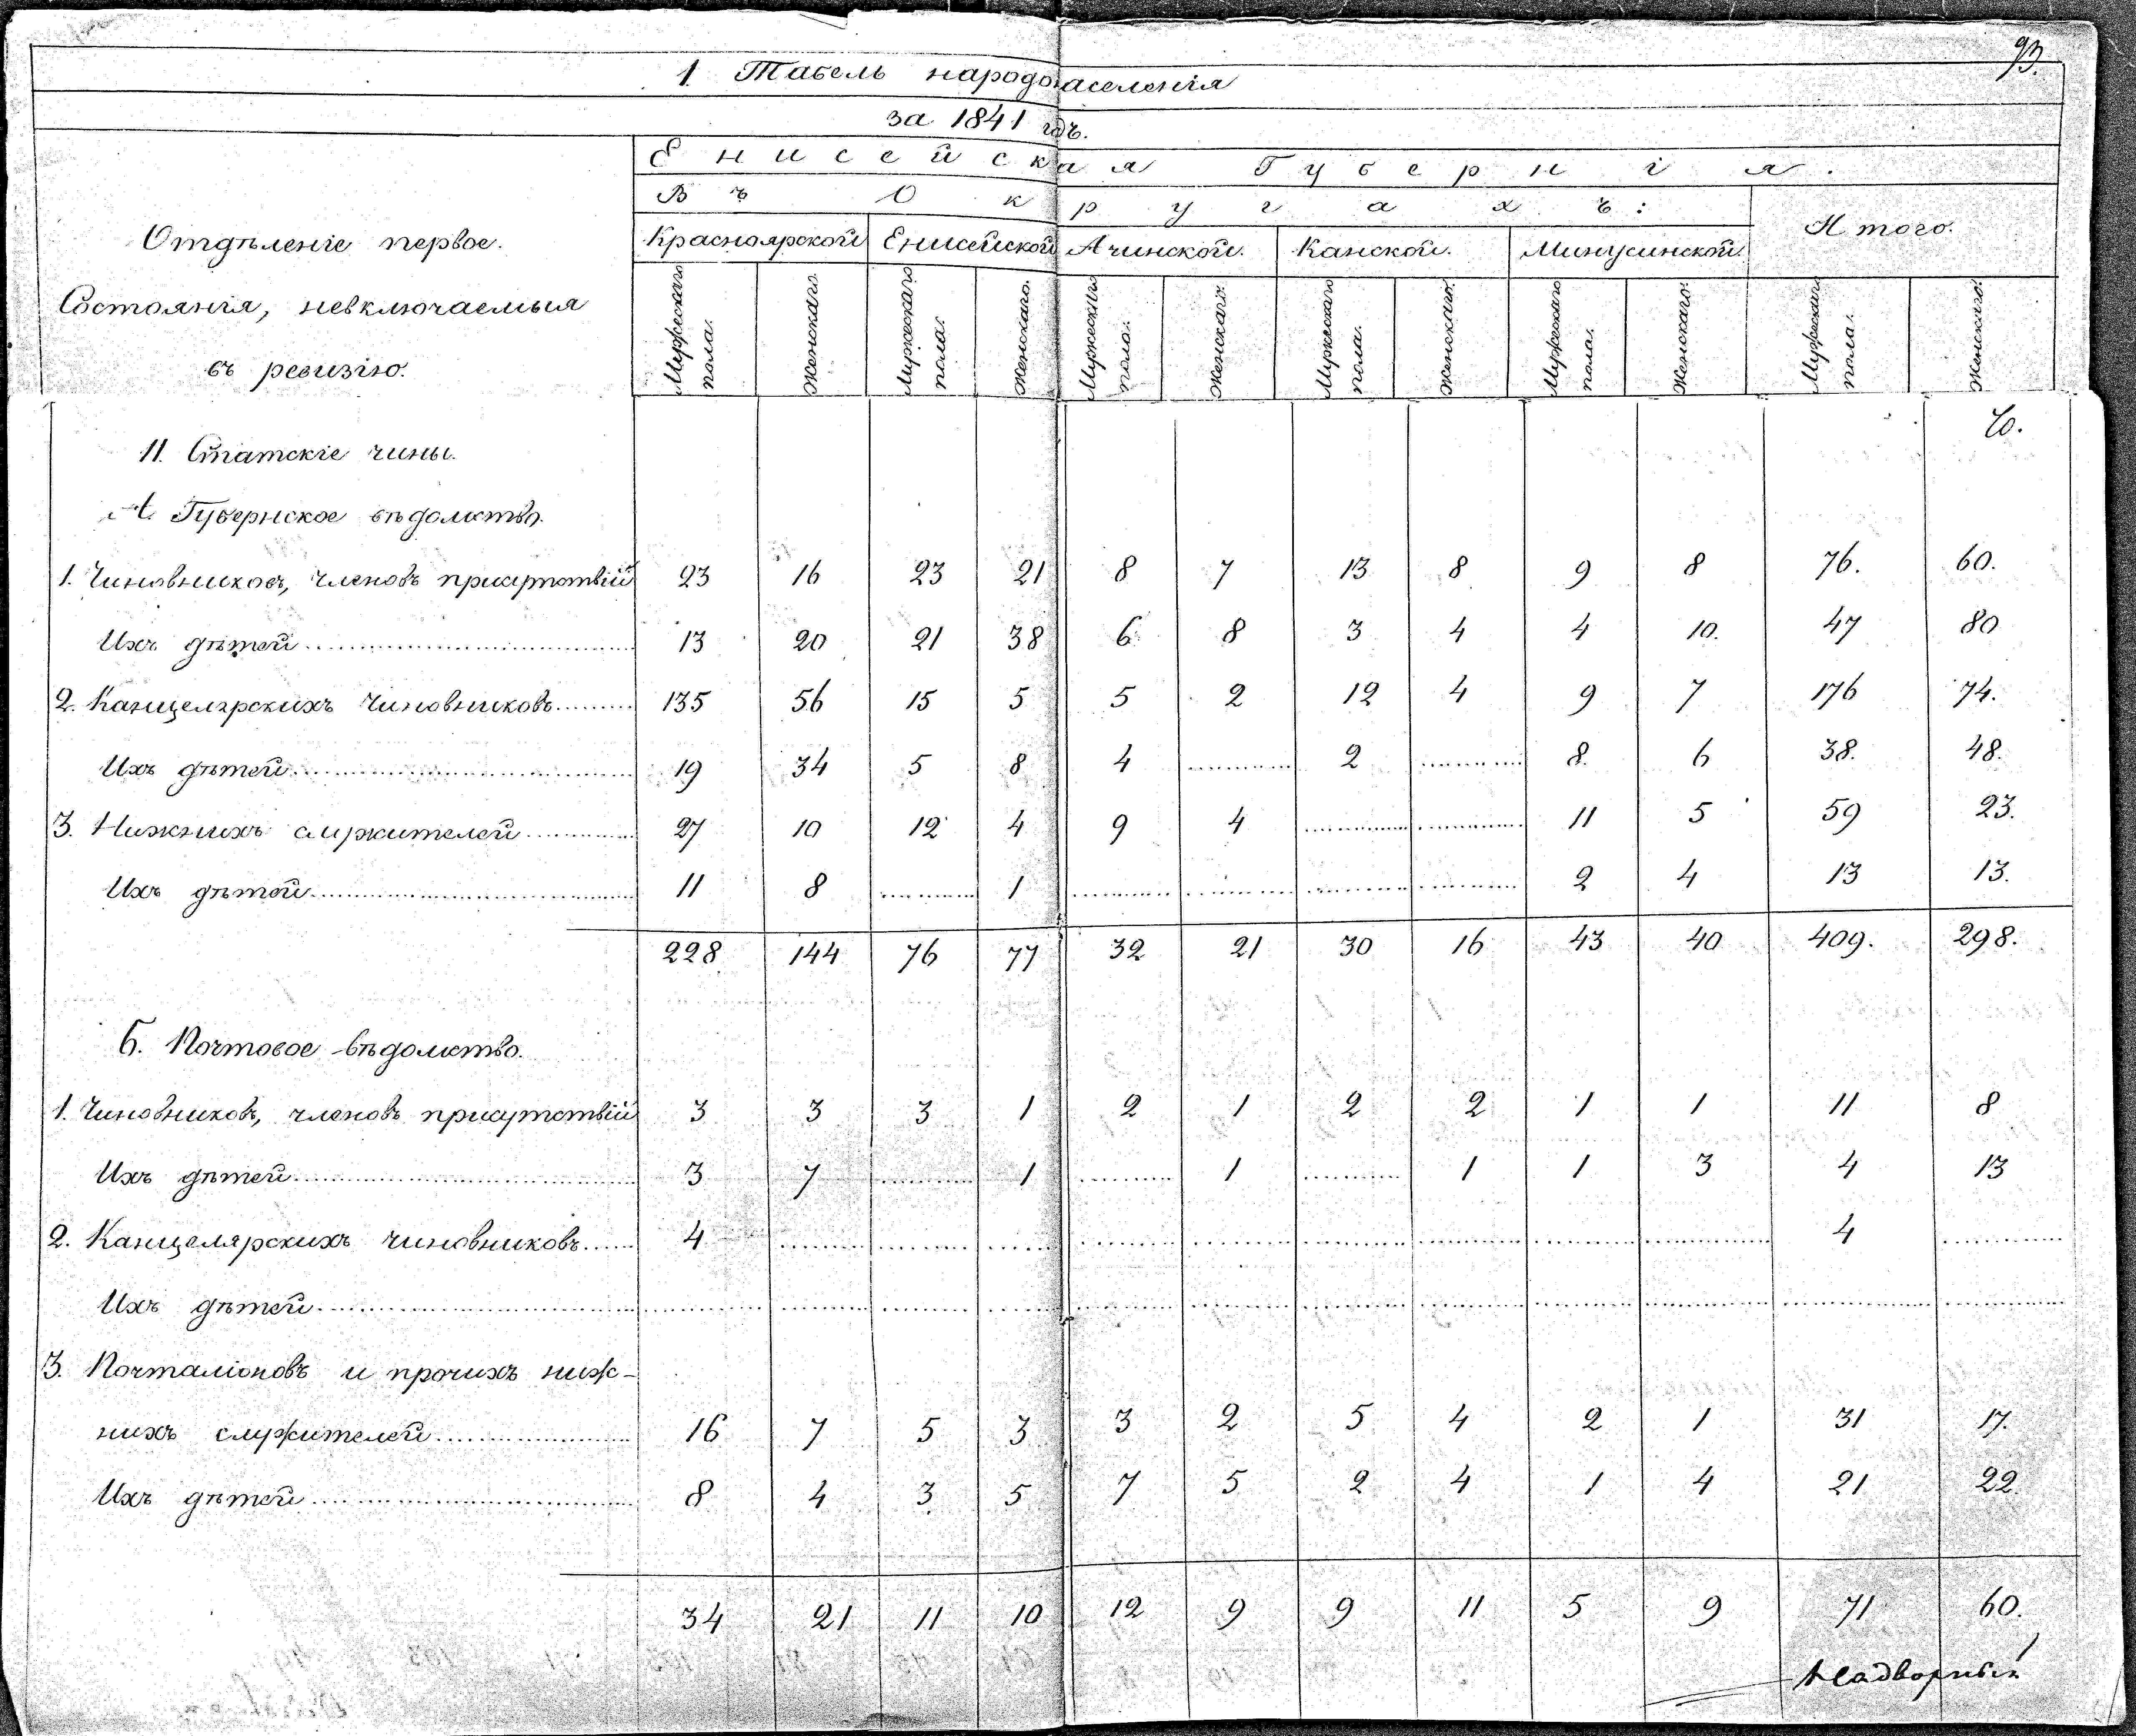 93.
1. Табель народонаселенія
за 1841 годъ.
Енисейская Губернія.
Въ Округахъ:
Итого.
Отдѣленіе первое.
Состоянія, невключаемыя
въ ревизію.
Красноярской Енисейской Ачинской. Канской. Минусинской.
Мужескаго пола. Женскаго. Мужескаго пола. Женскаго. Мужескаго пола. Женскаго. Мужескаго пола. Женскаго. Мужескаго пола. Женскаго. Мужескаго пола. Женскаго.
II. Статскіе чины.
А. Губернское вѣдомство.
1. Чиновниковъ, членовъ присутствій 23 16 23 21 8 7 13 8 9 8 76. 60.
Ихъ дѣтей 13 20 21 38 6 8 3 4 4 10. 47 80
2. Канцелярскихъ чиновниковъ 135 56 15 5 5 2 12 4 9 7 176 74.
Ихъ дѣтей 19 34 5 8 4 2 8. 6 38. 48.
3. Нижнихъ служителей 27 10 12 4 9 4 11 5 59 23.
Ихъ дѣтей 11 8 1 2 4 13 13.
228 144 76 77 32 21 30 16 43 40 409. 298.
Б. Почтовое вѣдомство.
1. Чиновниковъ, членовъ присутствій 3 3 3 1 2 1 2 2 1 1 11 8
Ихъ дѣтей 3 7 1 1 1 1 3 4 13
2. Канцелярскихъ чиновниковъ 4 4
Ихъ дѣтей
3. Почталіоновъ и прочихъ ниж-
нихъ служителей 16 7 5 3 3 2 5 4 2 1 31 17.
Ихъ дѣтей 8 4 3 5 7 5 2 4 1 4 21 22.
34 21 11 10 12 9 9 11 5 9 71 60.
Надворный